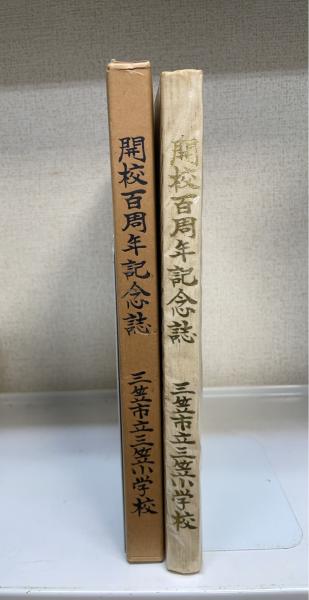 開校百周年記念誌
三笠市立三笠小学校
開校百周年記念誌
三笠市立三笠小学校